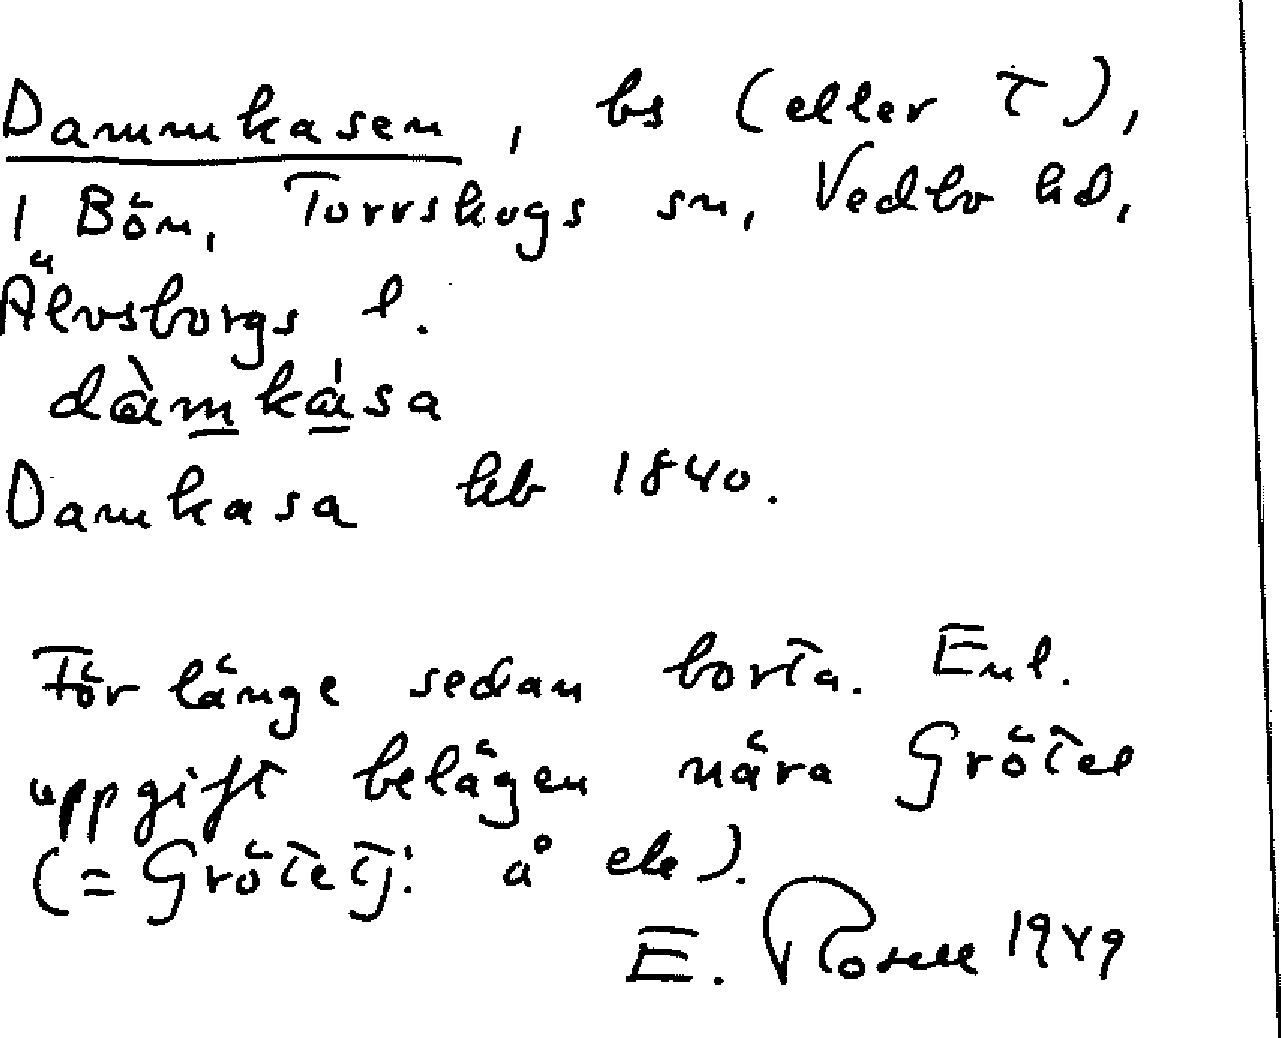 Dammkasen, bs (eller t),
1 Bön, Torrskogs sn, Vedbo hd,
Älvsborgs l.
dàmkása
Damkasa hb 1840.
För länge sedan borta. Enl.
uppgift belägen nära Grötel
(= Grötetj: å ek).
E. Rosell 1949